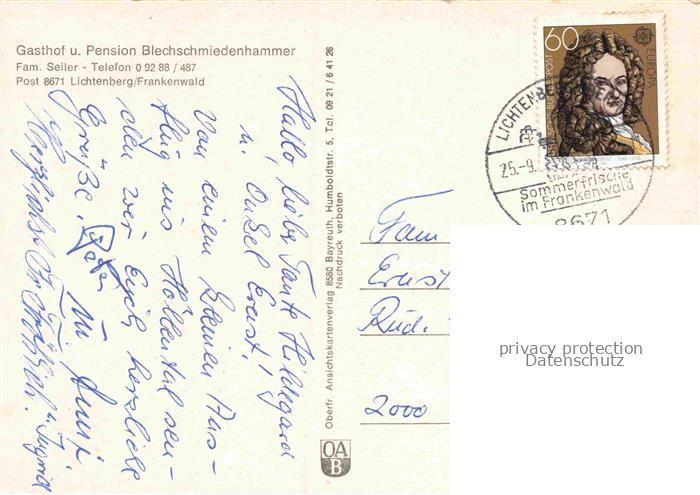 Gasthof u. Pension Blechschmiedenhammer
Fam. Seiler - Telefon 0 92 88 / 487
Post 8671 Lichtenberg/Frankenwald
Hallo, liebe Tante Hildegard
u. Onkel Ernst!
Von einem kleinen Aus-
flug ins Höllental sen-
den wir Euch herzliche
Grüße.
Peter
Herzlichst
u. Ingrid
Oberfr. Ansichtskartenverlag 8580 Bayreuth, Humboldtstr. 5, Tel. 09 21 / 6 41 26
Nachdruck verboten
OA
B
60
EUROPA
LICHTENB
25.-9.
Sommerfrische
im Frankenwald
8671
Fam
Ernst
Rud.
2000
privacy protection
Datenschutz